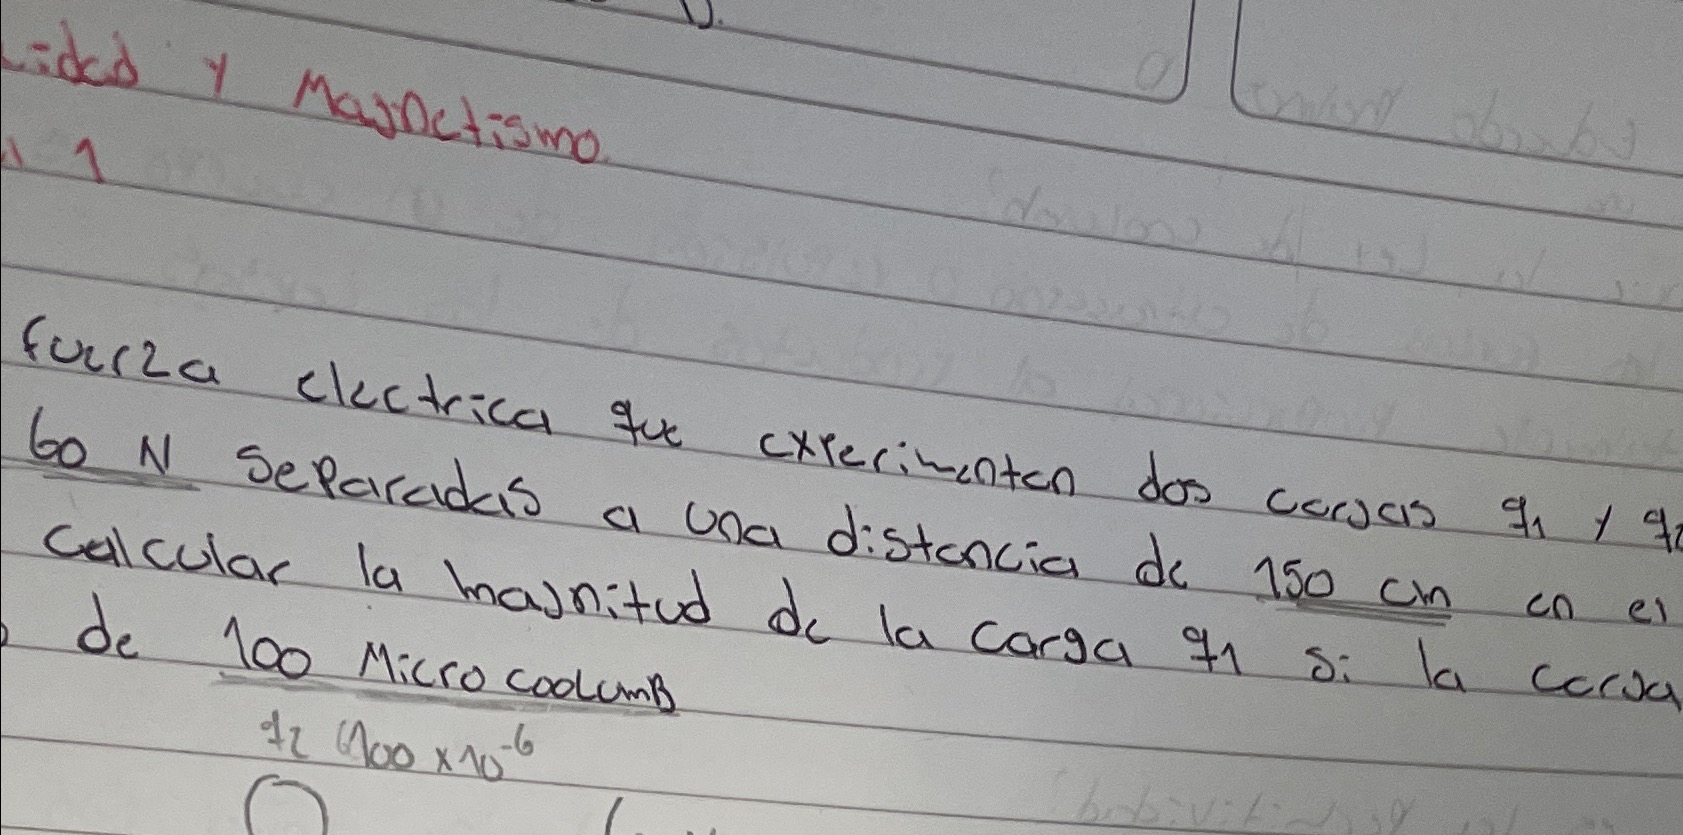 idad y Magnetismo
1
fuerza electrica que experimentan dos cargas q1 y q2
60 N separadas a una distancia de 150 cm en el
calcular la magnitud de la carga q1 si la carga
de 100 Micro coolumB
q2 (100 x 10-6